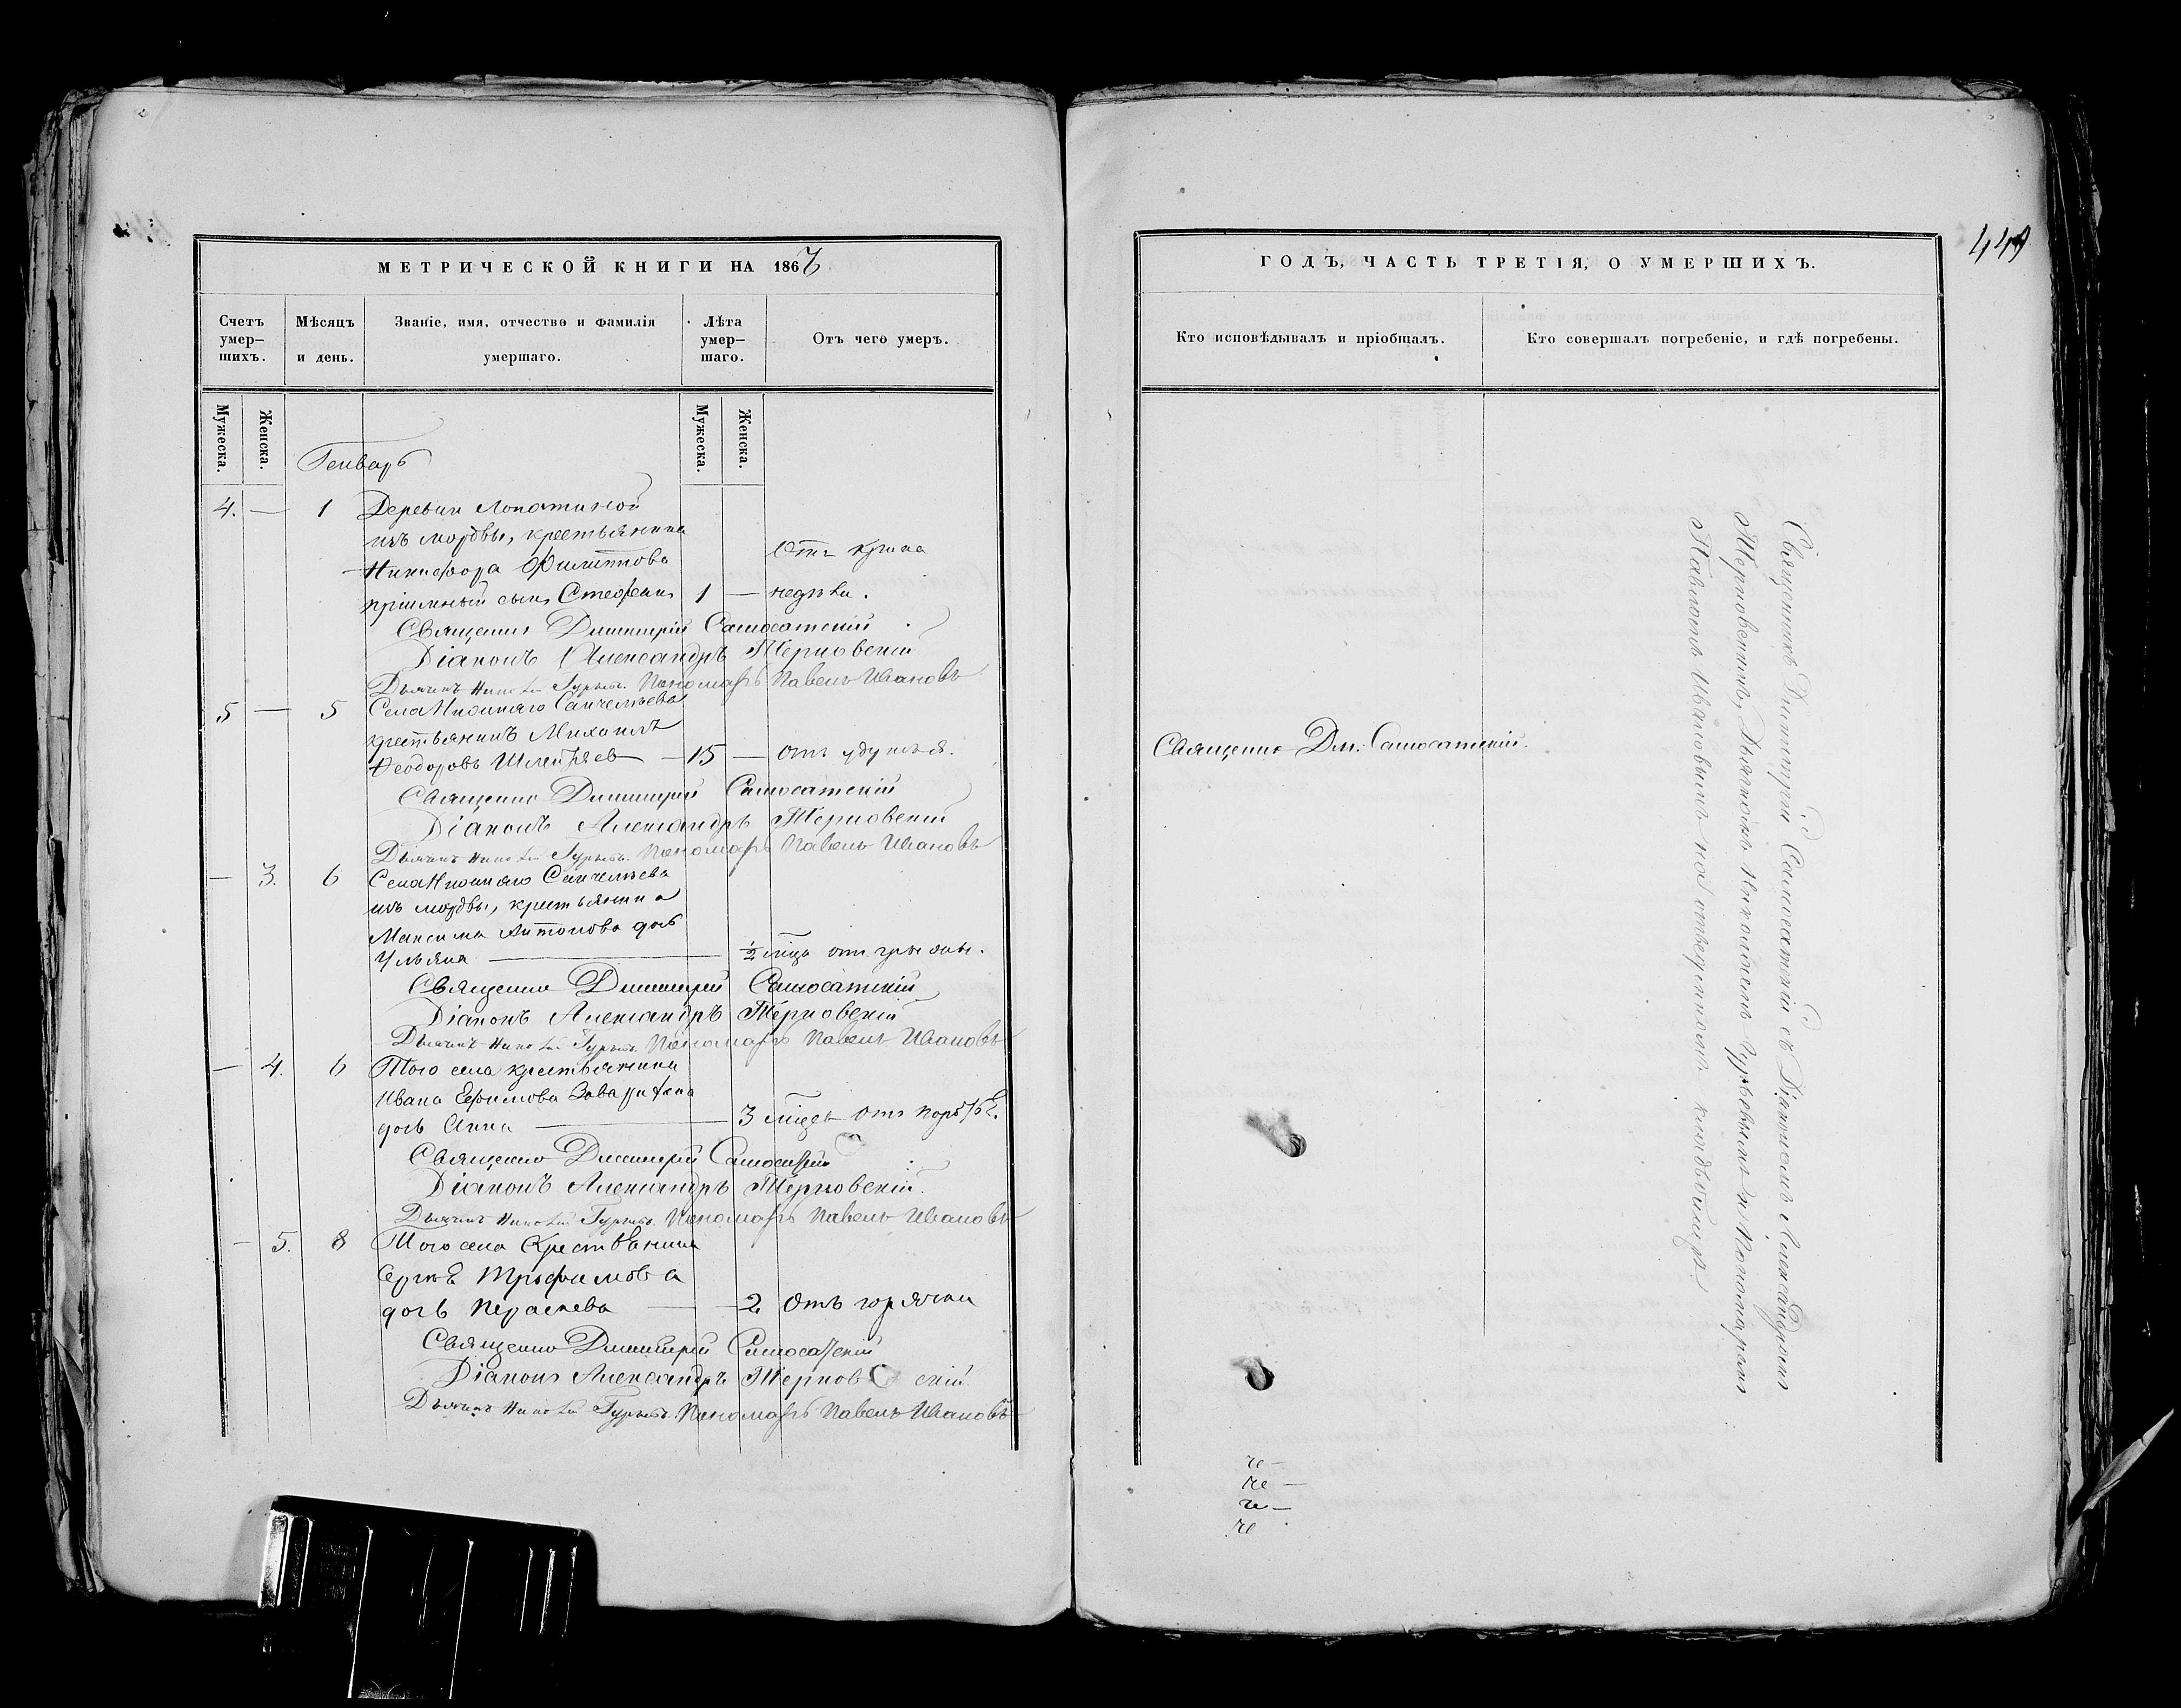 МЕТРИЧЕСКОЙ КНИГИ НА 1867
Счетъ умер-шихъ.
Мѣсяцъ и день.
Званіе, имя, отчество и фамилія умершаго.
Лѣта умер-шаго.
Отъ чего умеръ.
Мужеска.
Женска.
Мужеска.
Женска.
Генварь
4. — 1 Деревни Лопатиной
изъ мордвы, крестьянина
Никифора Филиппова
пріимный сынъ Стефанъ 1 — Отъ крика
недѣли.
Священникъ Димитрій Самосатскій
Діаконъ Александръ Терновскій
Дьячекъ Николай Гурьевъ. Пономарь Павелъ Ивановъ
5 — 5 Села Нижняго Санчелѣева
крестьянинъ Михаилъ
Феодоровъ — 15 — отъ удушья.
Священно Димитрій Самосатскій
Діаконъ Александръ Терновскій
Дьячекъ Николай Гурьевъ. Пономарь Павелъ Ивановъ
— 3. 6 Села Нижняго Санчелѣева
изъ мордвы, крестьянина
Максима Антонова дочь
Ульяна — ½ мца отъ грызи.
Священно Димитрій Самосатскій
Діаконъ Александръ Терновскій
Дьячекъ Николай Гурьевъ. Пономарь Павелъ Ивановъ
— 4. 6 Того села крестьянина
Ивана Ефимова
дочь Анна — 3 мцев отъ
Священно Димитрій Самосатскій
Діаконъ Александръ Терновскій.
Дьячекъ Николай Гурьевъ. Пономарь Павелъ Ивановъ
— 5. 8 Того села Крестьянина
Сергѣя Трофимова
дочь Параскева — 2 Отъ горячки
Священно Димитрій Самосатскій
Діаконъ Александръ Терновскій
Дьячекъ Николай Гурьевъ. Пономарь Павелъ Ивановъ
449
ГОДЪ, ЧАСТЬ ТРЕТІЯ, О УМЕРШИХЪ.
Кто исповѣдывалъ и пріобщалъ.
Кто совершалъ погребеніе, и гдѣ погребены.
Священно Дм. Самосатскій.
Священникъ Димитрій Самосатскій съ Діакономъ Александромъ
Терновскимъ, Дьячкомъ Николаемъ Гурьевымъ и Пономаремъ
Павломъ Ивановымъ на отведенномъ кладбищѣ.